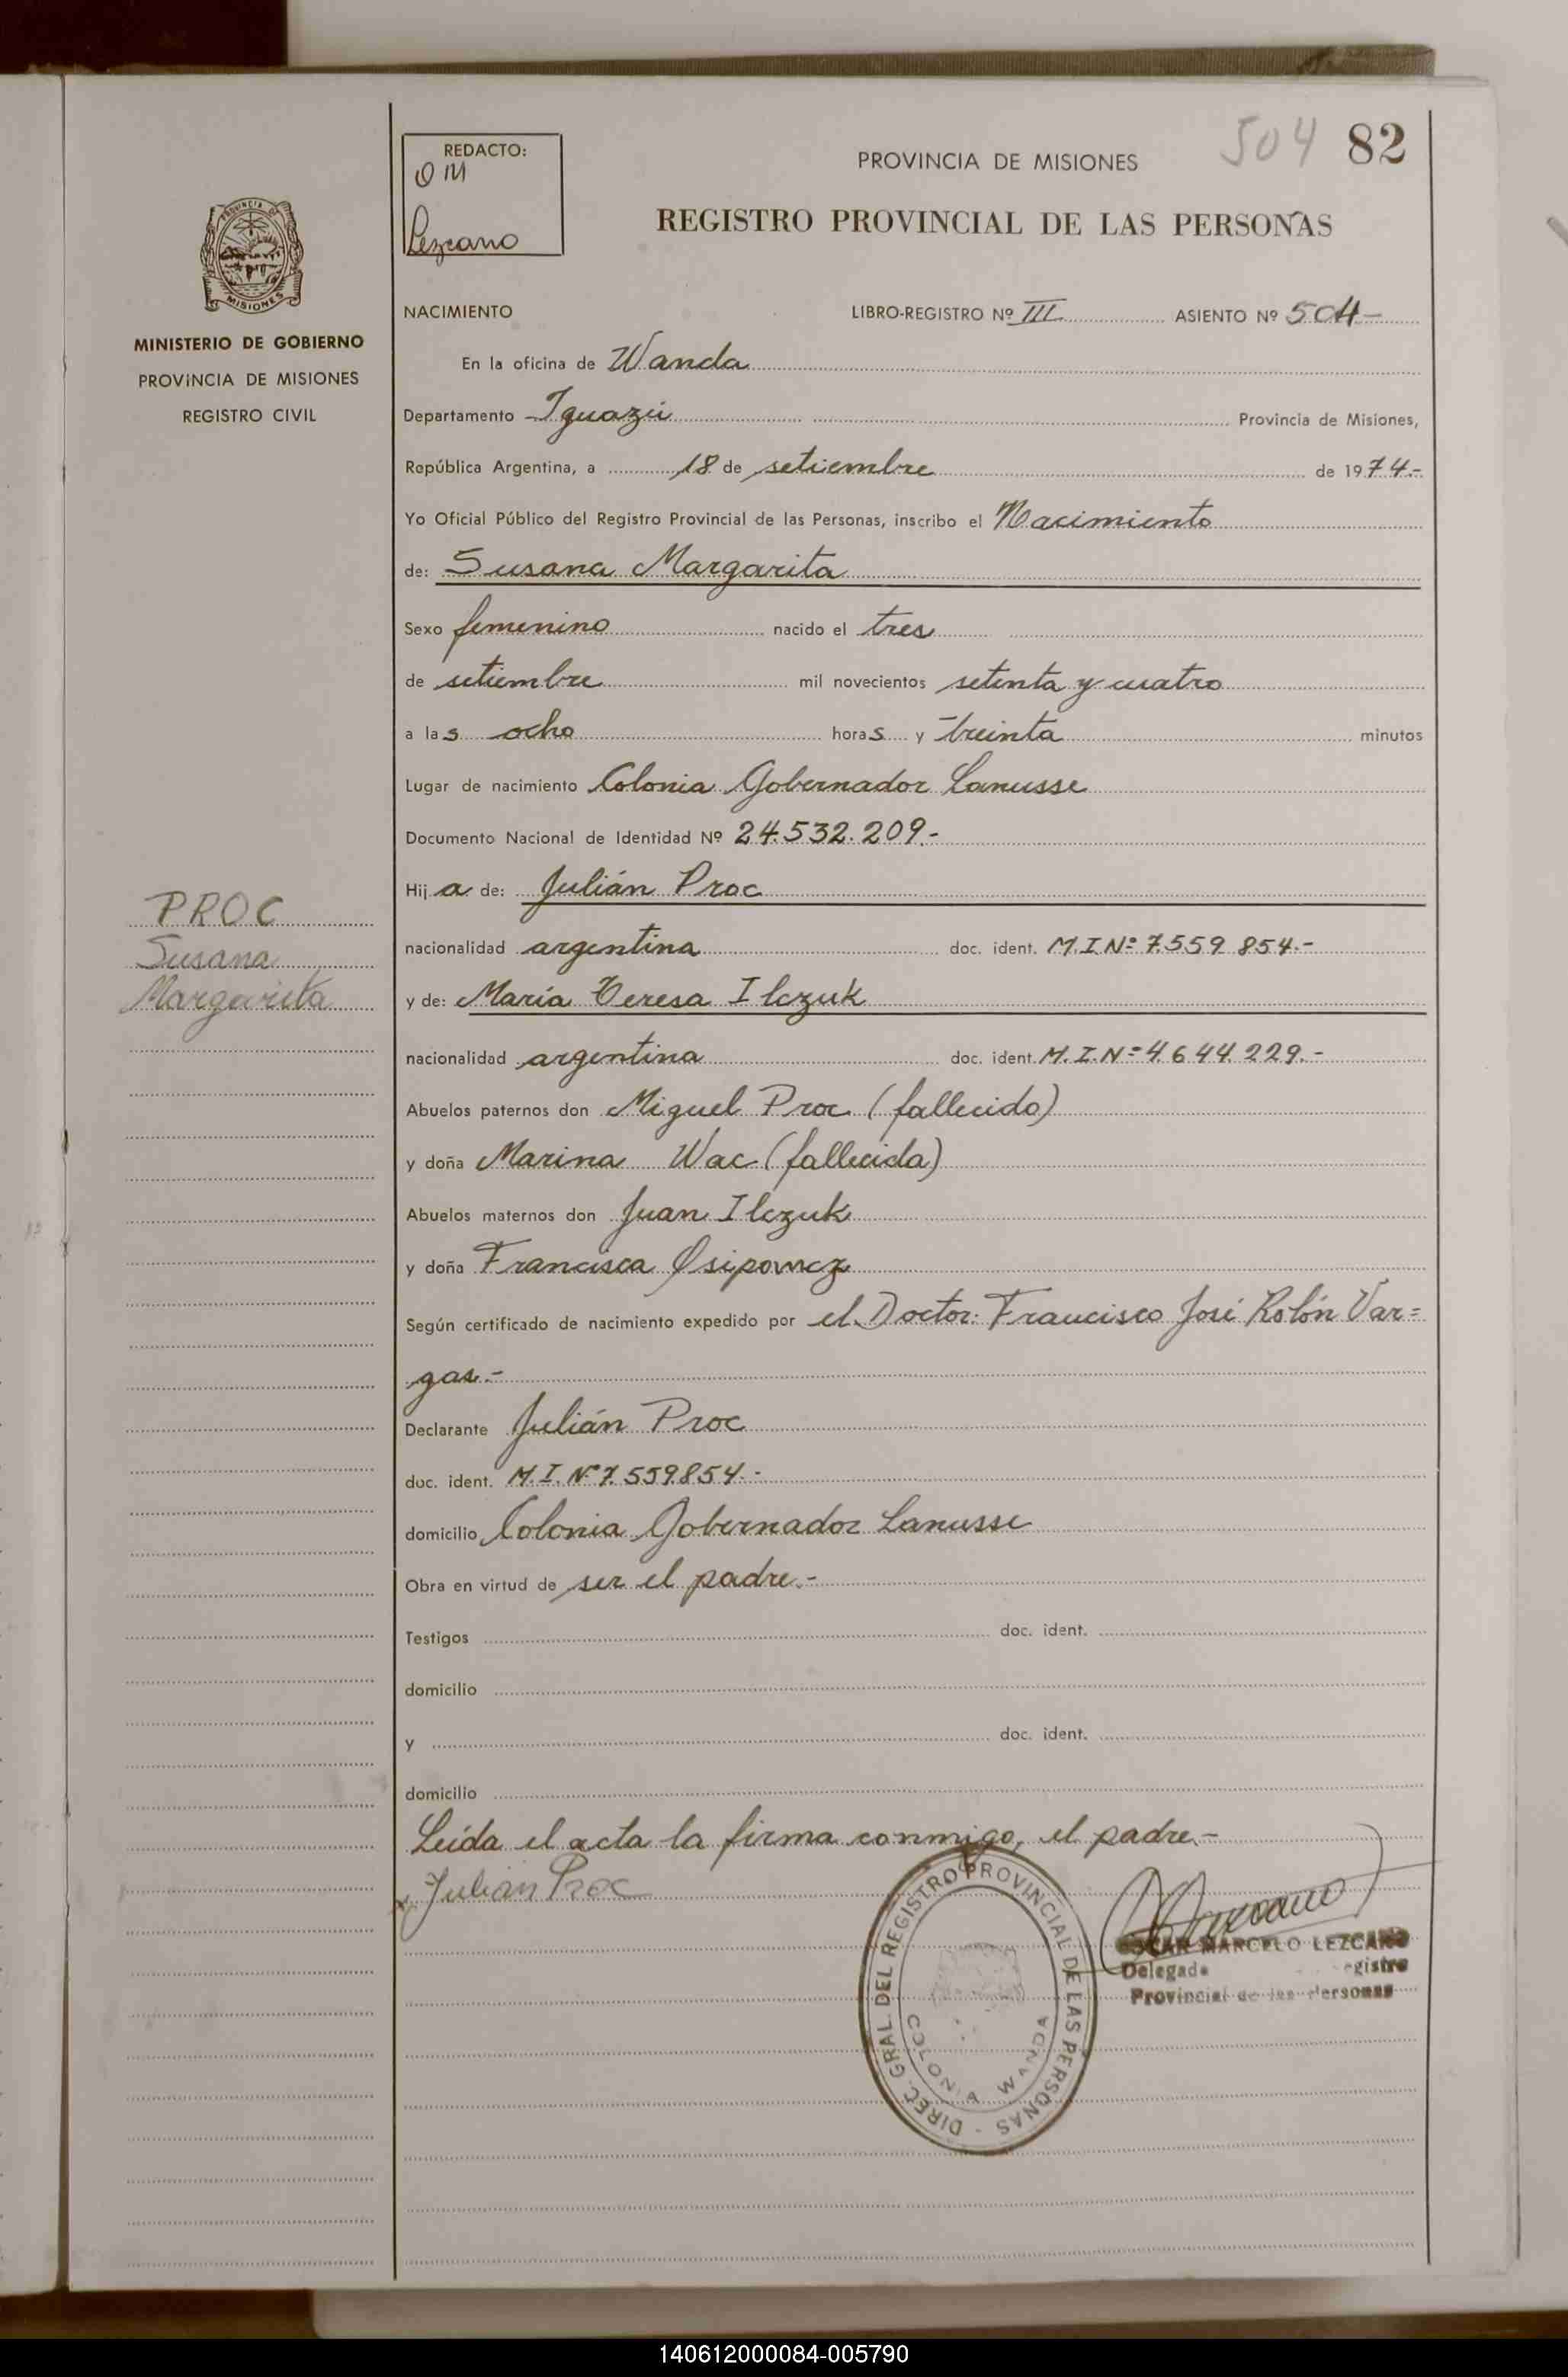 REDACTO:
OM
Lezcano
504 82
PROVINCIA DE MISIONES
REGISTRO PROVINCIAL DE LAS PERSONAS
PROVINCIA DE
MISIONES
MINISTERIO DE GOBIERNO
PROVINCIA DE MISIONES
REGISTRO CIVIL
NACIMIENTO LIBRO-REGISTRO Nº III ASIENTO Nº 504-
En la oficina de Wanda
Departamento Iguazú Provincia de Misiones,
República Argentina, a 18 de setiembre de 1974.-
Yo Oficial Público del Registro Provincial de las Personas, inscribo el Nacimiento
de: Susana Margarita
Sexo femenino nacido el tres
de setiembre mil novecientos setenta y cuatro
a las ocho horas y treinta minutos
Lugar de nacimiento Colonia Gobernador Lanusse
Documento Nacional de Identidad Nº 24.532.209.-
Hija de: Julián Proc
PROC
Susana
Margarita
nacionalidad argentina doc. ident. M.I.Nº 7.559 854.-
y de: María Teresa Ilczuk
nacionalidad argentina doc. ident. M.I.Nº 4.644.229.-
Abuelos paternos don Miguel Proc (fallecido)
y doña Marina Wac (fallecida)
Abuelos maternos don Juan Ilczuk
y doña Francisca
Según certificado de nacimiento expedido por el Doctor: Francisco José Rolón Var=
gas.-
Declarante Julián Proc
doc. ident. M.I.Nº 7.559.854.-
domicilio Colonia Gobernador Lanusse
Obra en virtud de ser el padre.-
Testigos doc. ident.
domicilio
y doc. ident.
domicilio
Leída el acta la firma conmigo, el padre.-
Julian Proc
DIREC. GRAL. DEL REGISTRO PROVINCIAL DE LAS PERSONAS -
COLONIA WANDA
OSCAR MARCELO LEZCANO
Delegado
Provincial de las Personas
140612000084-005790